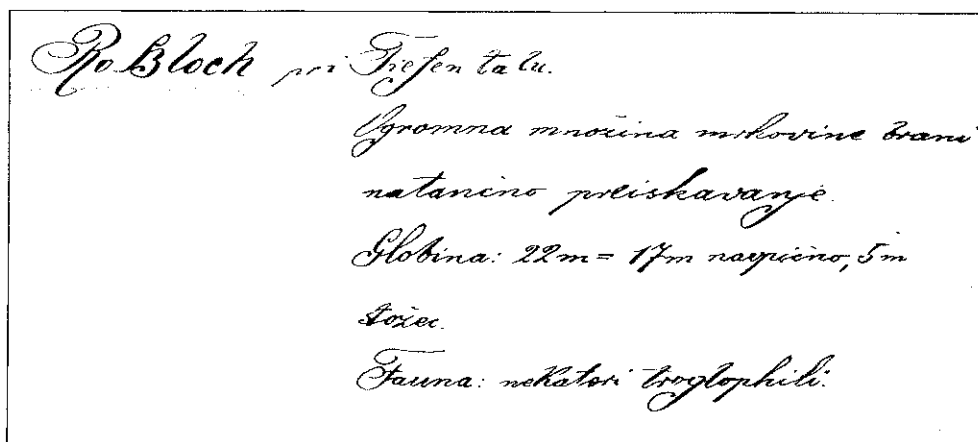 Roßloch pri Tiefentalu.
Ogromna množina mrhovine brani
natančno preiskavanje.
Globina: 22m = 17m navpično, 5m
stožec.
Fauna: nekateri troglophili.